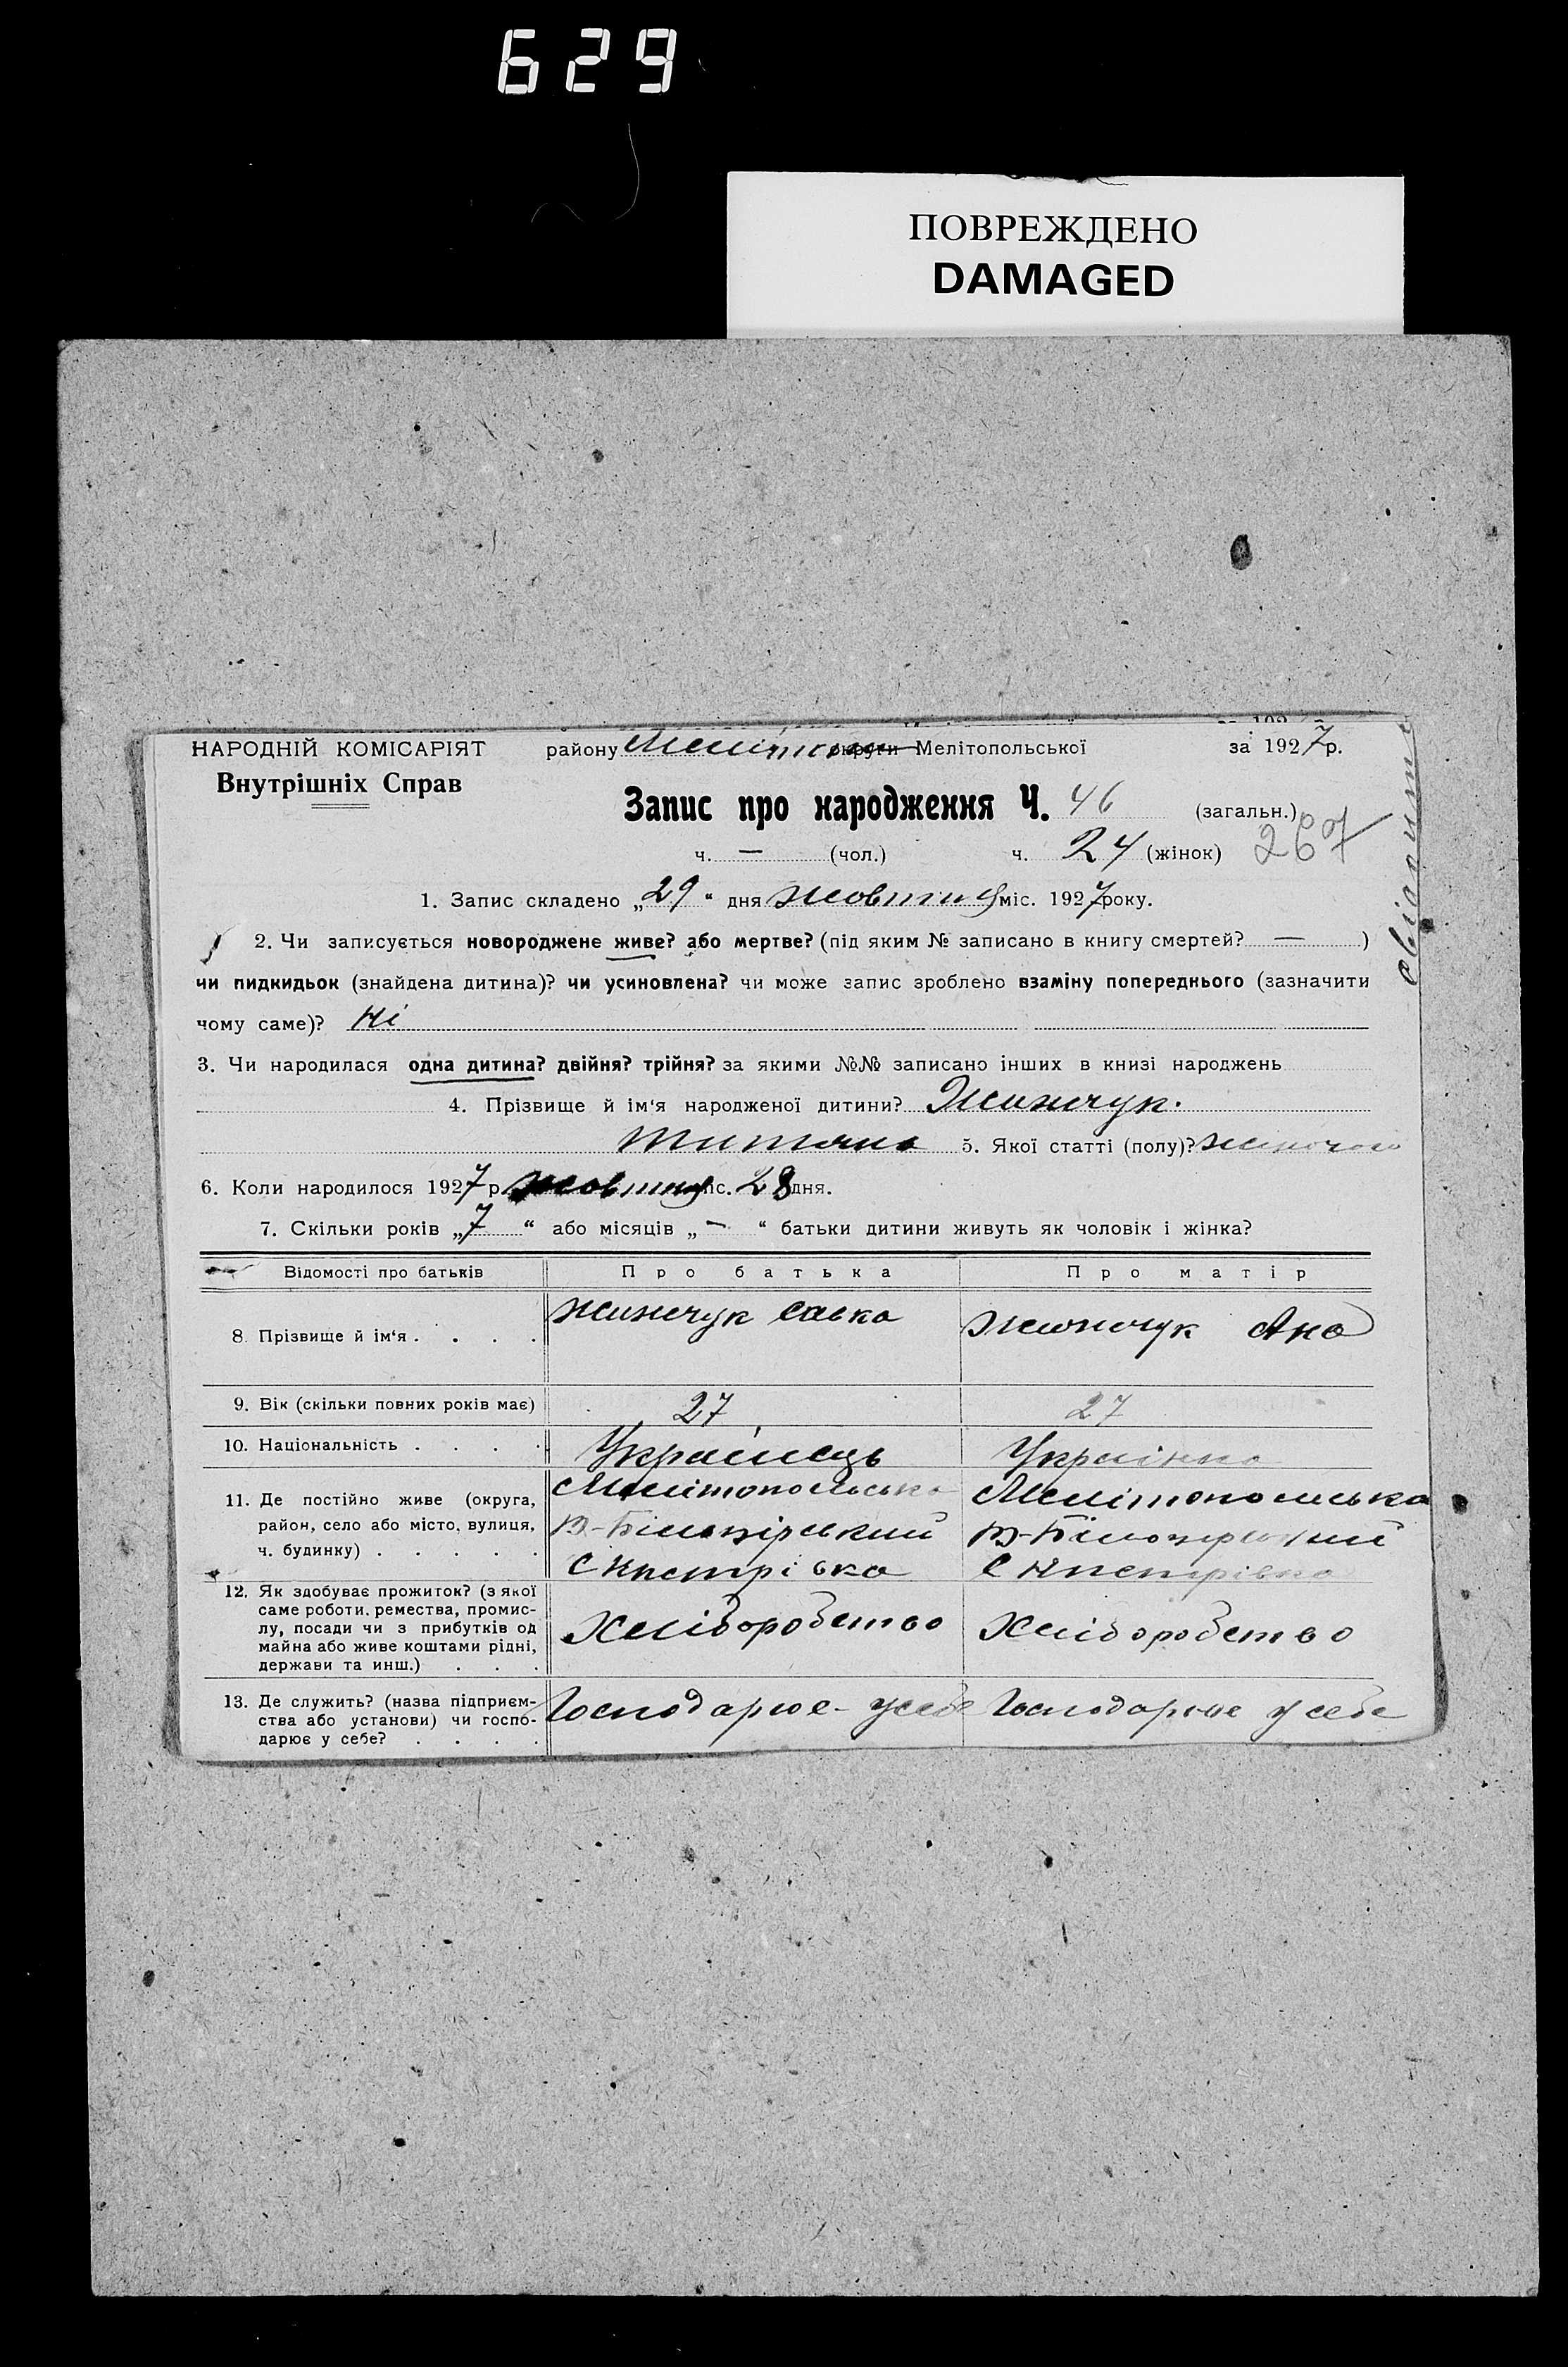 629
ПОВРЕЖДЕНО
DAMAGED
НАРОДНІЙ КОМІСАРІЯТ
Внутрішніх Справ
району округи Мелітопольської за 1927р.
Запис про народження Ч. 46 (загальн.)
ч. — (чол.) ч. 24 (жінок) 267
1. Запис складено „29“ дня жовтня міс. 1927 року.
2. Чи записується новороджене живе? або мертве? (під яким № записано в книгу смертей? — )
чи пидкидьок (знайдена дитина)? чи усиновлена? чи може запис зроблено взаміну попереднього (зазначити
чому саме)? Ні
3. Чи народилася одна дитина? двійня? трійня? за якими №№ записано інших в книзі народжень
4. Прізвище й ім‘я народженої дитини? Жинжчук.
5. Якої статті (полу)? жіночого
6. Коли народилося 1927 р. жовтня міс. 28 дня.
7. Скільки років „7“ або місяців „—“ батьки дитини живуть як чоловік і жінка?
Відомості про батьків Про батька Про матір
8. Прізвище й ім‘я . . . . Савко Ана
9. Вік (скільки повних років має) 27 27
10. Національність . . . . Українець Українка
11. Де постійно живе (округа, Мелітопольська Мелітопольська
район, село або місто, вулиця, В-Білозірський В-Білозірський
ч. будинку) . . . . . С С
12. Як здобуває прожиток? (з якої
саме роботи, ремества, промис-
лу, посади чи з прибутків од Хліборобство Хліборобство
майна або живе коштами рідні,
держави та инш.) . . .
13. Де служить? (назва підприєм- Господарює у себе Господарює у себе
ства або установи) чи госпо-
дарює у себе? . . . .